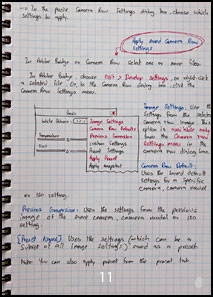 → In the Paste Camera Raw Settings dialog box, choose which
settings to apply.
Apply saved Camera Raw
settings
In Adobe Bridge or Camera Raw select one or more files.
In Adobe Bridge choose Edit > Develop settings, or right-click
a selected file. Or, in the Camera Raw dialog box, click the
Camera Raw Settings menu.
Basic
White Balance:
Temperature
Image Settings
Camera Raw Defaults
Previous Conversion
Custom Settings
Preset Settings
Apply Preset
Apply Snapshot
Image Settings: Use the
settings from the selected
camera raw image. This
option is available only
from the Camera Raw
Settings menu in the
camera raw dialog box.
Camera Raw Defaults:
Uses the saved default
settings for a specific
camera, camera model
or ISO setting.
Previous Conversion: Uses the settings from the previous
image of the same camera, camera model or ISO
setting.
[Preset Name]: Uses the settings (which can be a
subset of all image settings) saved as a preset.
Note: You can also apply presets from the Presets tab
11